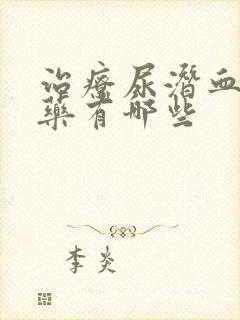 治療尿潛血
藥有哪些
李炎